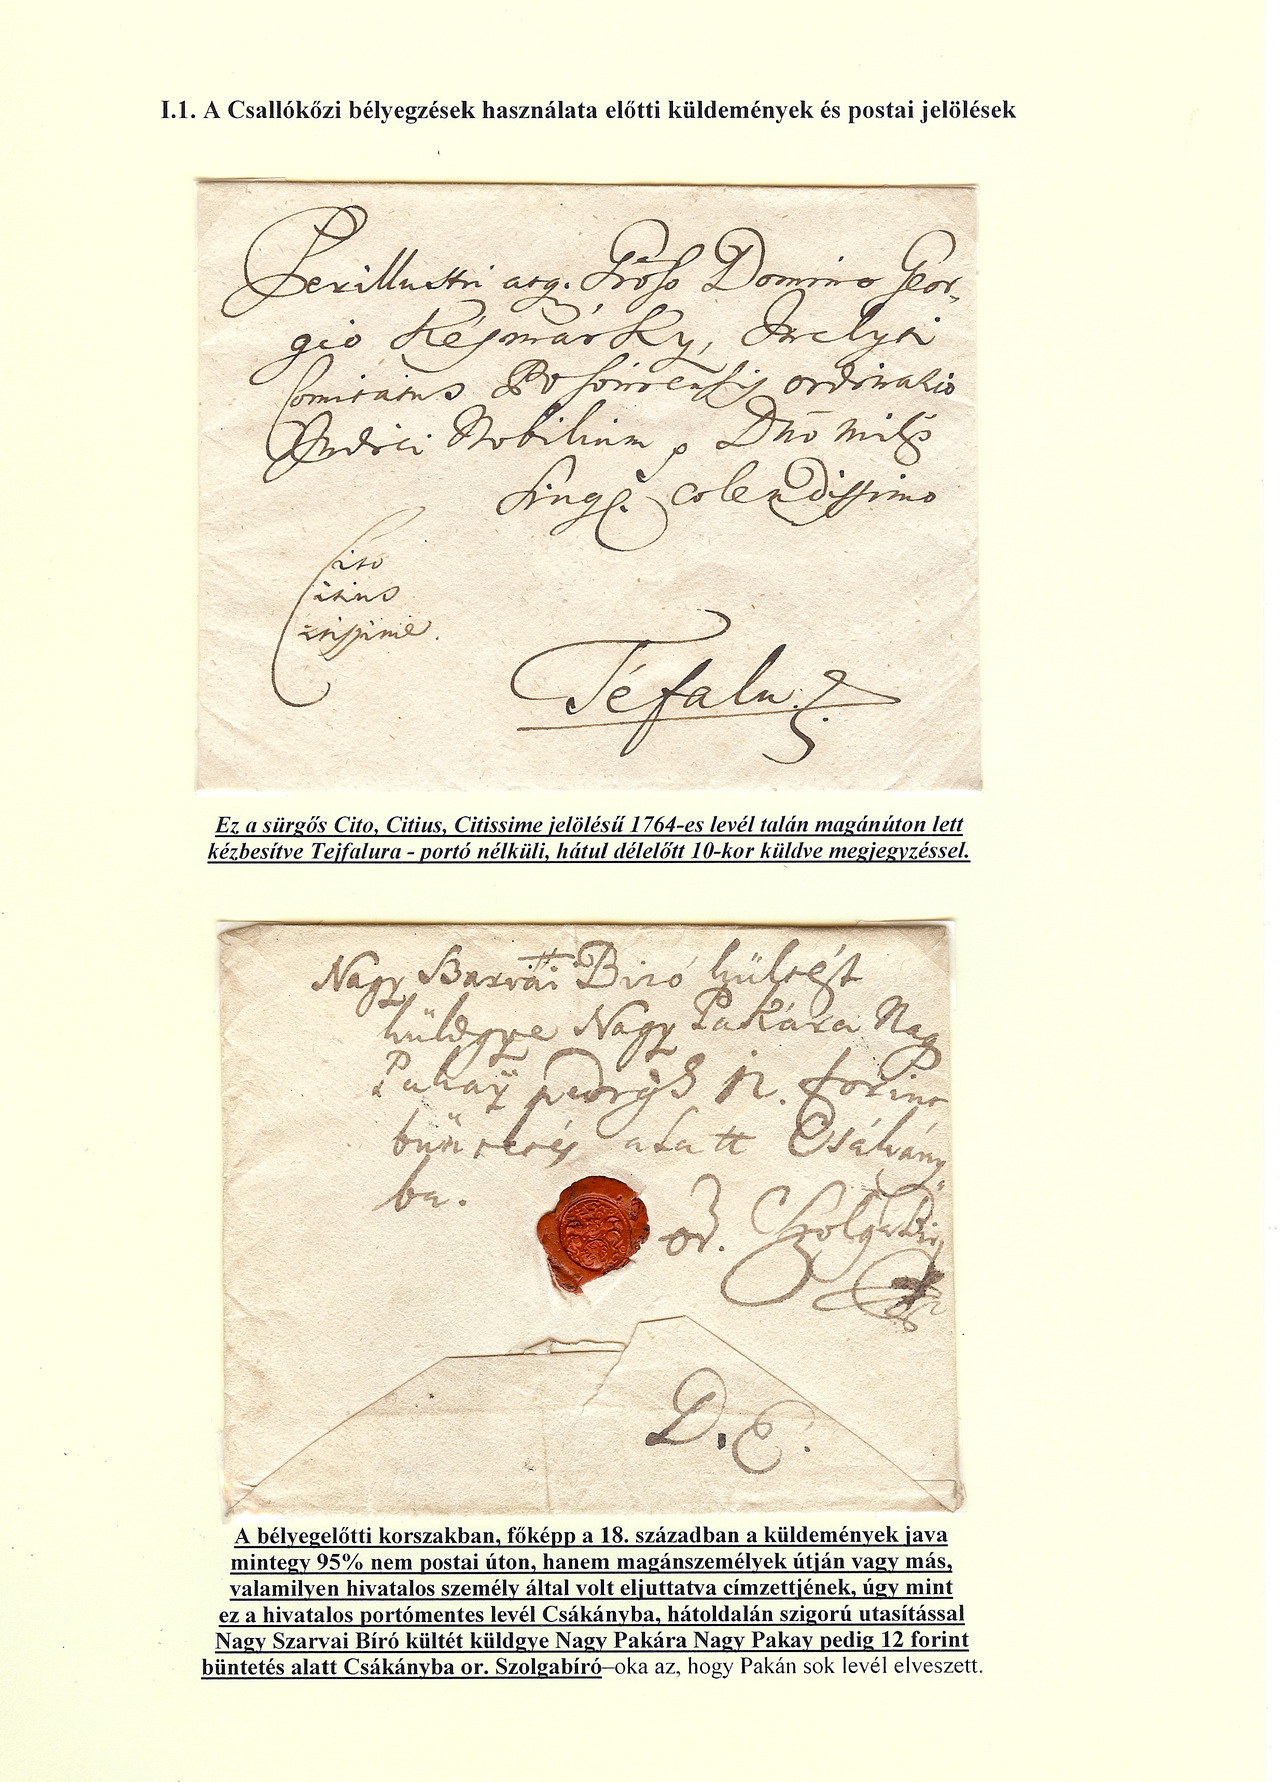 I.1. A Csallókőzi bélyegzések használata előtti küldemények és postai jelölések
Perillustri acq. Groso Domino Geor-
gio Késmárky, Inclyti
Comitatus Posoniensis ordinario
Judici Nobilium, Dno mihi
Sing. colendissimo
Cito
itius
itissime.
Téfalu.
Ez a sürgős Cito, Citius, Citissime jelölésű 1764-es levél talán magánúton lett
kézbesítve Tejfalura - portó nélküli, hátul délelőtt 10-kor küldve megjegyzéssel.
Nagy Szarvai Biró
küldgye Nagy Pakára Nagy
Pakaÿ pedigh 12. forint
alatt Csákány
ba.
or. Szolga Biró
D. E.
A bélyegelőtti korszakban, főképp a 18. században a küldemények java
mintegy 95% nem postai úton, hanem magánszemélyek útján vagy más,
valamilyen hivatalos személy által volt eljuttatva címzettjének, úgy mint
ez a hivatalos portómentes levél Csákányba, hátoldalán szigorú utasítással
Nagy Szarvai Bíró kültét küldgye Nagy Pakára Nagy Pakay pedig 12 forint
büntetés alatt Csákányba or. Szolgabíró–oka az, hogy Pakán sok levél elveszett.